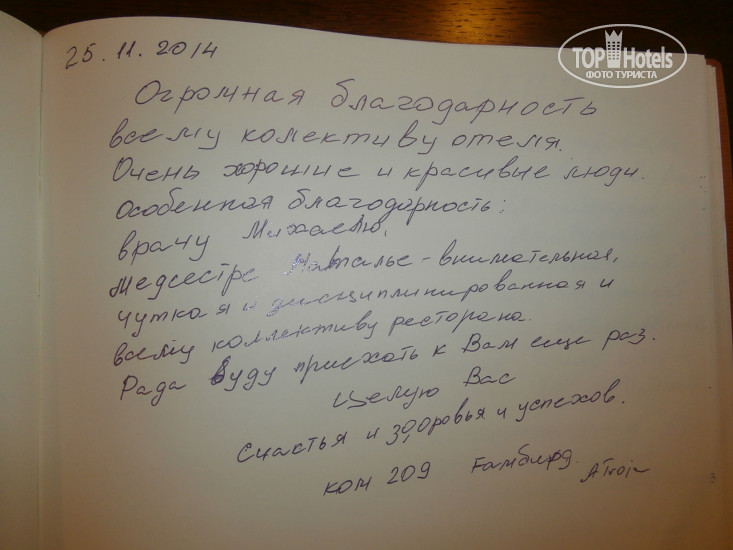 25.11.2014
TOPHotels
ФОТО ТУРИСТА
Огромная благодарность
всему колективу отеля.
Очень хорошие и красивые люди.
Особенная благодарность:
врачу Михаелю,
Медсестре Наталье - внимательная,
чуткая и дисциплинированная и
всему коллективу ресторана.
Рада буду приехать к Вам еще раз.
Целую Вас
Счастья и здоровья и успехов.
ком 209